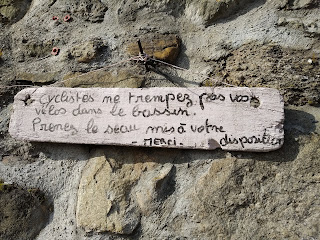 Cyclistes ne trempez pas vos
vélos dans le bassin.
Prenez le seau mis à votre
- MERCI. disposition